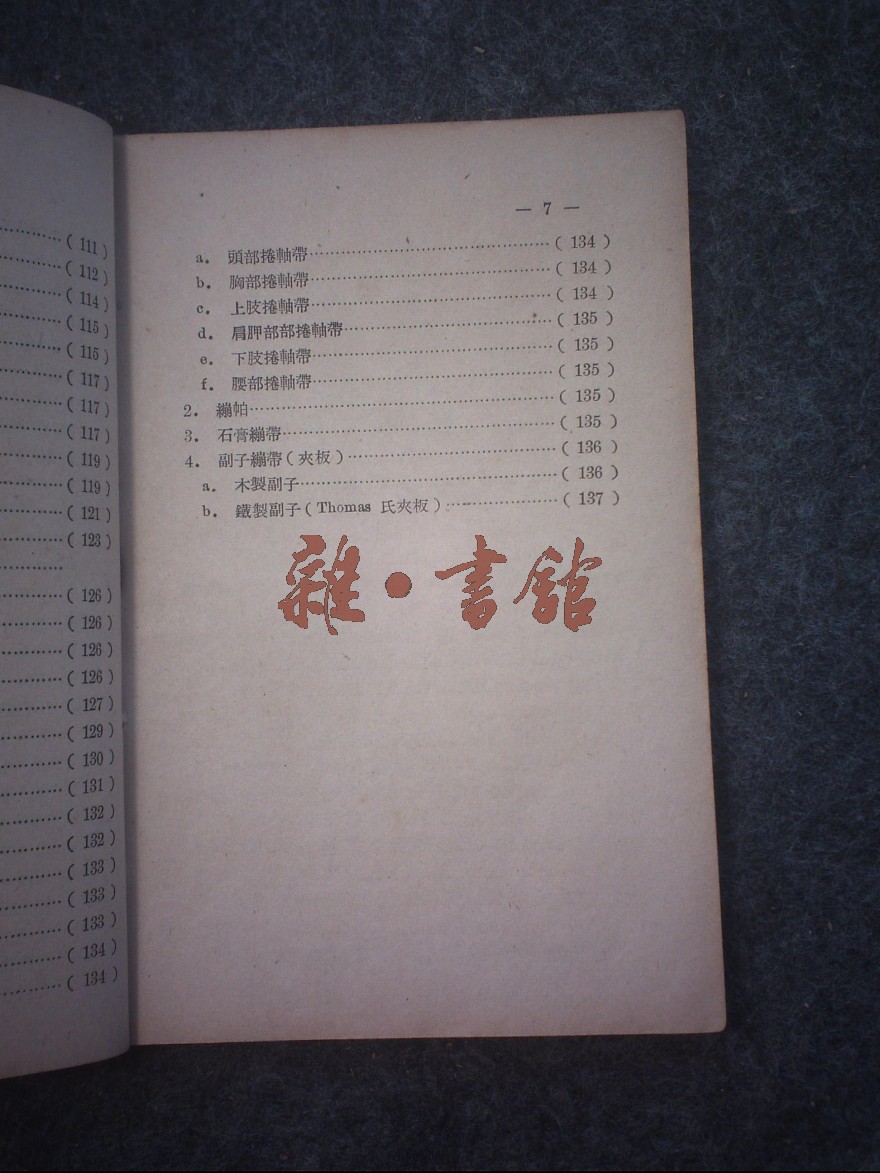 ………(111)
………(112)
………(114)
………(115)
………(115)
………(117)
………(117)
………(117)
………(119)
………(119)
………(121)
………(123)
………
………(126)
………(126)
………(126)
………(126)
………(127)
………(129)
………(130)
………(131)
………(132)
………(132)
………(133)
………(133)
………(133)
………(134)
………(134)
— 7 —
a. 頭部捲軸帶………(134)
b. 胸部捲軸帶………(134)
c. 上肢捲軸帶………(134)
d. 肩胛部部捲軸帶………(135)
e. 下肢捲軸帶………(135)
f. 腰部捲軸帶………(135)
2. 繃帕………(135)
3. 石膏繃帶………(135)
4. 副子繃帶(夾板)………(136)
a. 木製副子………(136)
b. 鐵製副子(Thomas 氏夾板)………(137)
雜·書舘